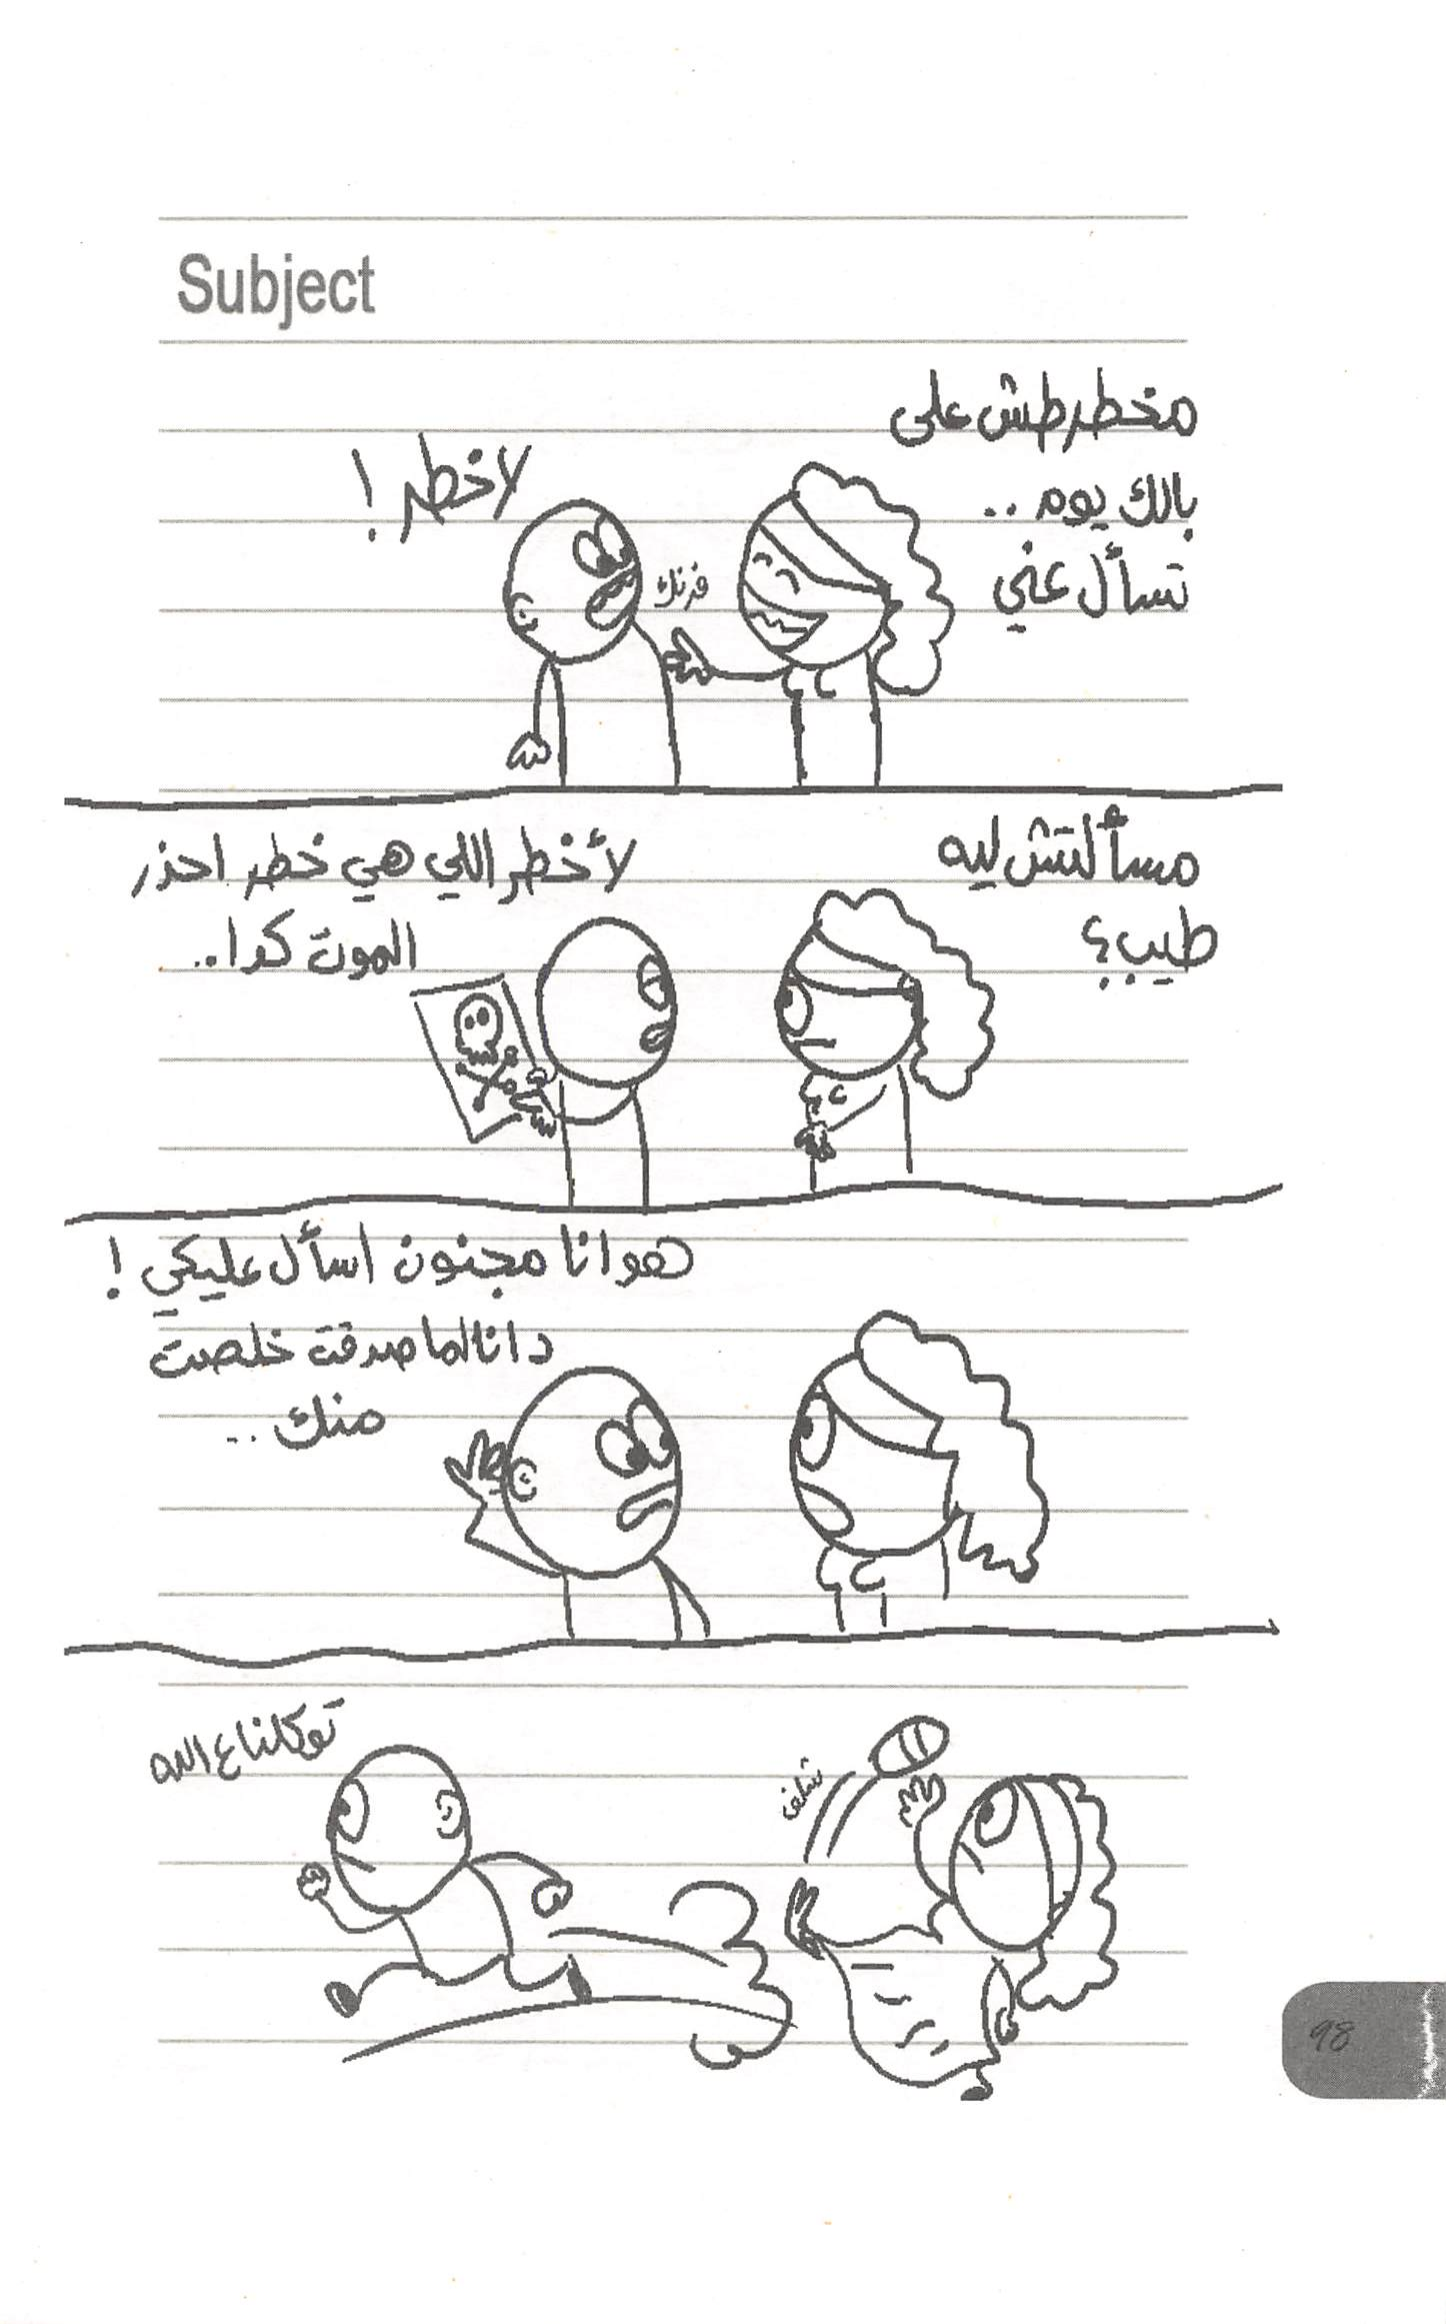 Subject
مخطرطش على
بالك يوم ..
تسأل عني
لا خطر !
فرنك
مسألتش ليه
طيب ؟
لأ خطر اللي هي خطر احذر
الموت كدا ..
هو انا مجنون اسأل عليكي !
دانا لما صدقت خلصت
منك ..
توكلنا ع الله
98